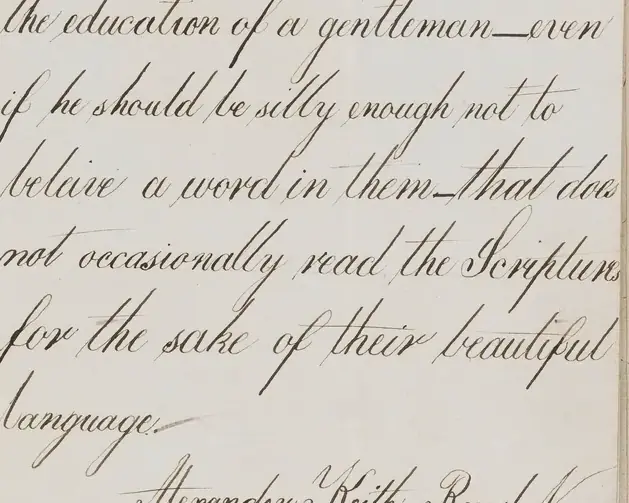 the education of a gentleman—even
if he should be silly enough not to
beleive a word in them—that does
not occasionally read the Scriptures
for the sake of their beautiful
language.
Alexander Keith